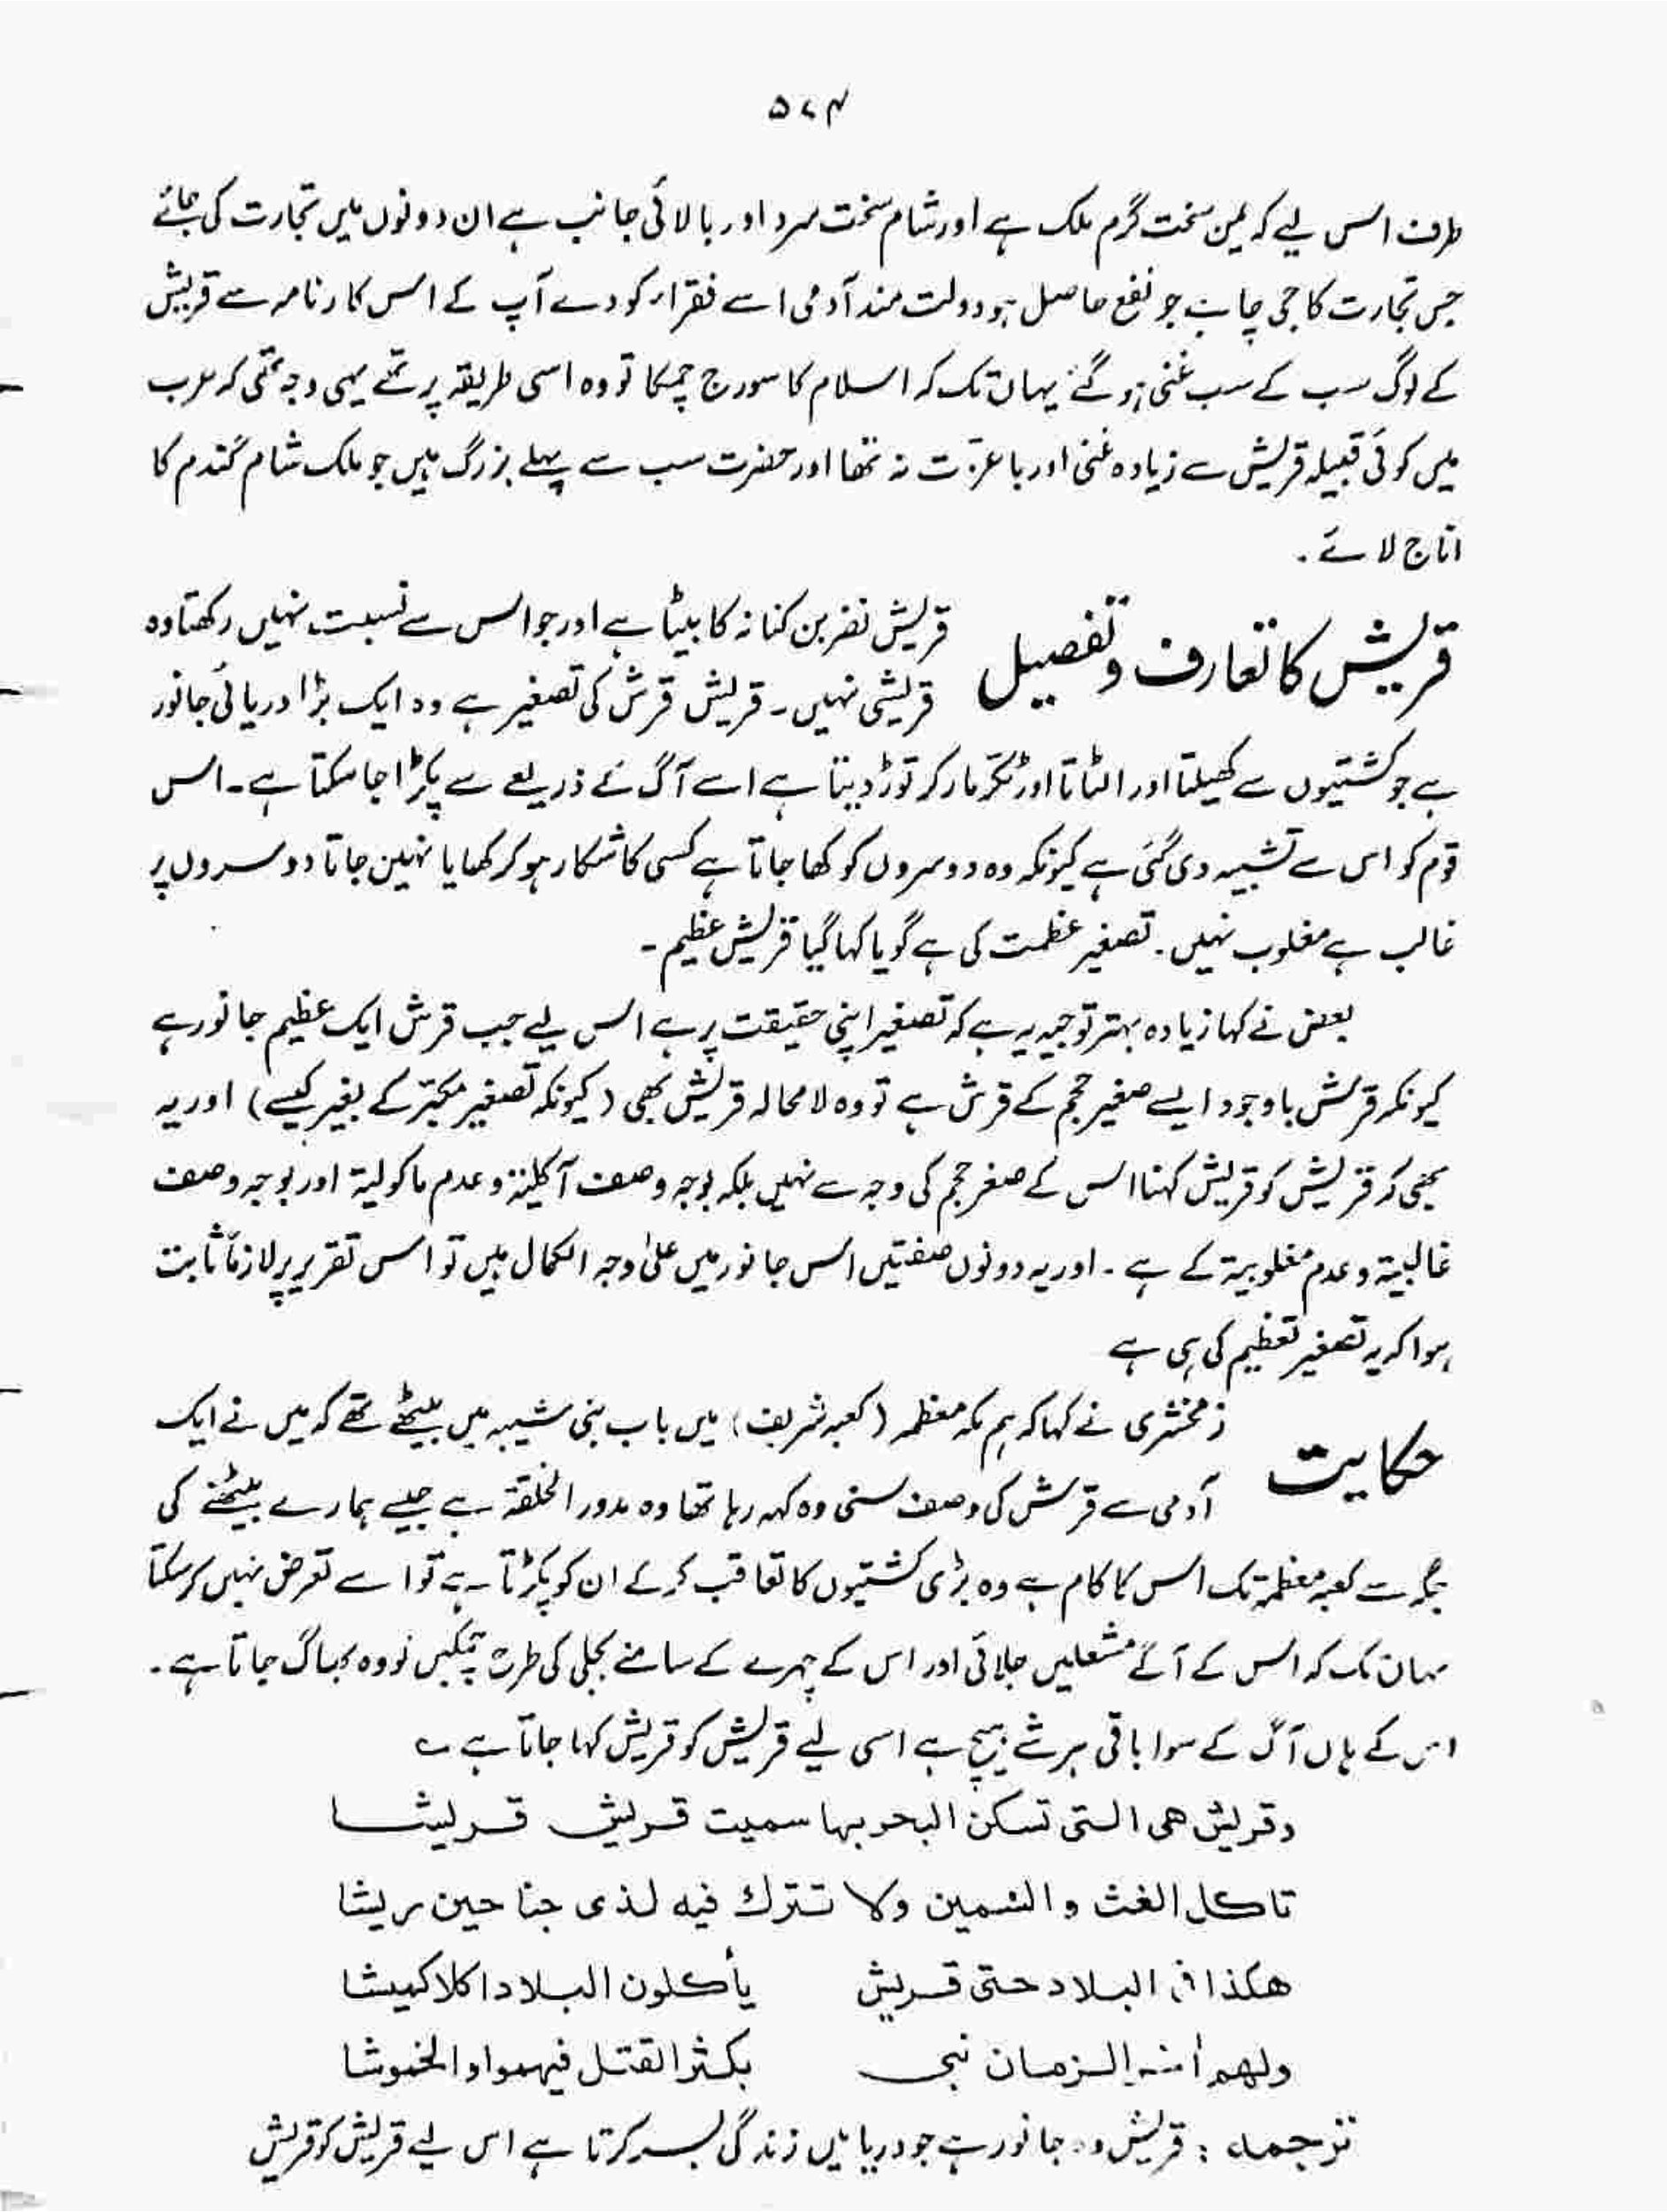 ۵۷۴
طرف اس لیے کہ یمن سخت گرم ملک ہے اور شام سخت سرد اور بالائی جانب ہے ان دونوں میں تجارت کی جائے
جس تجارت کا جی چاہے جو نفع حاصل ہو دولت مند آدمی اسے فقراء کو دے آپ کے اس کارنامہ سے قریش
کے لوگ سب کے سب غنی ہو گئے یہاں تک کہ اسلام کا سورج چمکا تو وہ اسی طریقہ پر تھے یہی وجہ تھی کہ عرب
میں کوئی قبیلہ قریش سے زیادہ غنی اور باعزت نہ تھا اور حضرت سب سے پہلے بزرگ ہیں جو ملک شام گندم کا
اناج لائے ۔
قریش کا تعارف و تفصیل
قریش نضر بن کنانہ کا بیٹا ہے اور جو اس سے نسبت نہیں رکھتا وہ
قریشی نہیں ۔ قریش قرش کی تصغیر ہے وہ ایک بڑا دریائی جانور
ہے جو کشتیوں سے کھیلتا اور الٹاتا اور ٹکر مار کر توڑ دیتا ہے اسے آگ کے ذریعے سے پکڑا جا سکتا ہے ۔ اس
قوم کو اس سے تشبیہ دی گئی ہے کیونکہ وہ دوسروں کو کھا جاتا ہے کسی کا شکار ہو کر کھایا نہیں جاتا دوسروں پر
غالب ہے مغلوب نہیں ۔ تصغیر عظمت کی ہے گویا کہا گیا قریش عظیم ۔
بعض نے کہا زیادہ بہتر توجیہ یہ ہے کہ تصغیر اپنی حقیقت پر ہے اس لیے جب قرش ایک عظیم جانور ہے
کیونکہ قریش باوجود ایسے صغیر حجم کے قرش ہے تو وہ لا محالہ قریش بھی (کیونکہ تصغیر مکبّر کے بغیر کیسے) اور یہ
بھی کہ قریش کو قریش کہنا اس کے صغر حجم کی وجہ سے نہیں بلکہ بوجہ وصف آکلیۃ و عدم ماکولیۃ اور بوجہ وصف
غالبیۃ و عدم مغلوبیۃ کے ہے ۔ اور یہ دونوں صفتیں اس جانور میں علیٰ وجہ الکمال ہیں تو اس تقریر پر لازماً ثابت
ہوا کہ یہ تصغیر تعظیم کی ہی ہے
حکایت
زمخشری نے کہا کہ ہم مکہ معظمہ (کعبہ شریف) میں باب بنی شیبہ میں بیٹھے تھے کہ میں نے ایک
آدمی سے قرش کی وصف سنی وہ کہہ رہا تھا وہ مدور الخلقۃ ہے جیسے ہمارے بیٹھنے کی
جگہ سے کعبہ معظمہ تک اس کا کام ہے وہ بڑی کشتیوں کا تعاقب کر کے ان کو پکڑتا ہے تو اسے تعرض نہیں کر سکتا
یہاں تک کہ اس کے آگے مشعلیں جلائی اور اس کے چہرے کے سامنے بجلی کی طرح چمکیں تو وہ بھاگ جاتا ہے ۔
اس کے ہاں آگ کے سوا باقی ہر شے ہیچ ہے اسی لیے قریش کو قریش کہا جاتا ہے ؎
وقریش هی التی تسکن البحر بها سمیت قریش قریشا
تاکل الغث والسمین ولا تترك فیه لذی جناحین ریشا
هکذا فی البلاد حتی قریش یأکلون البلاد اکلا کمیشا
ولهم الزمان نبی یکثر القتل فیهم والخموشا
ترجمہ : قریش وہ جانور ہے جو دریا میں زندگی بسر کرتا ہے اس لیے قریش کو قریش